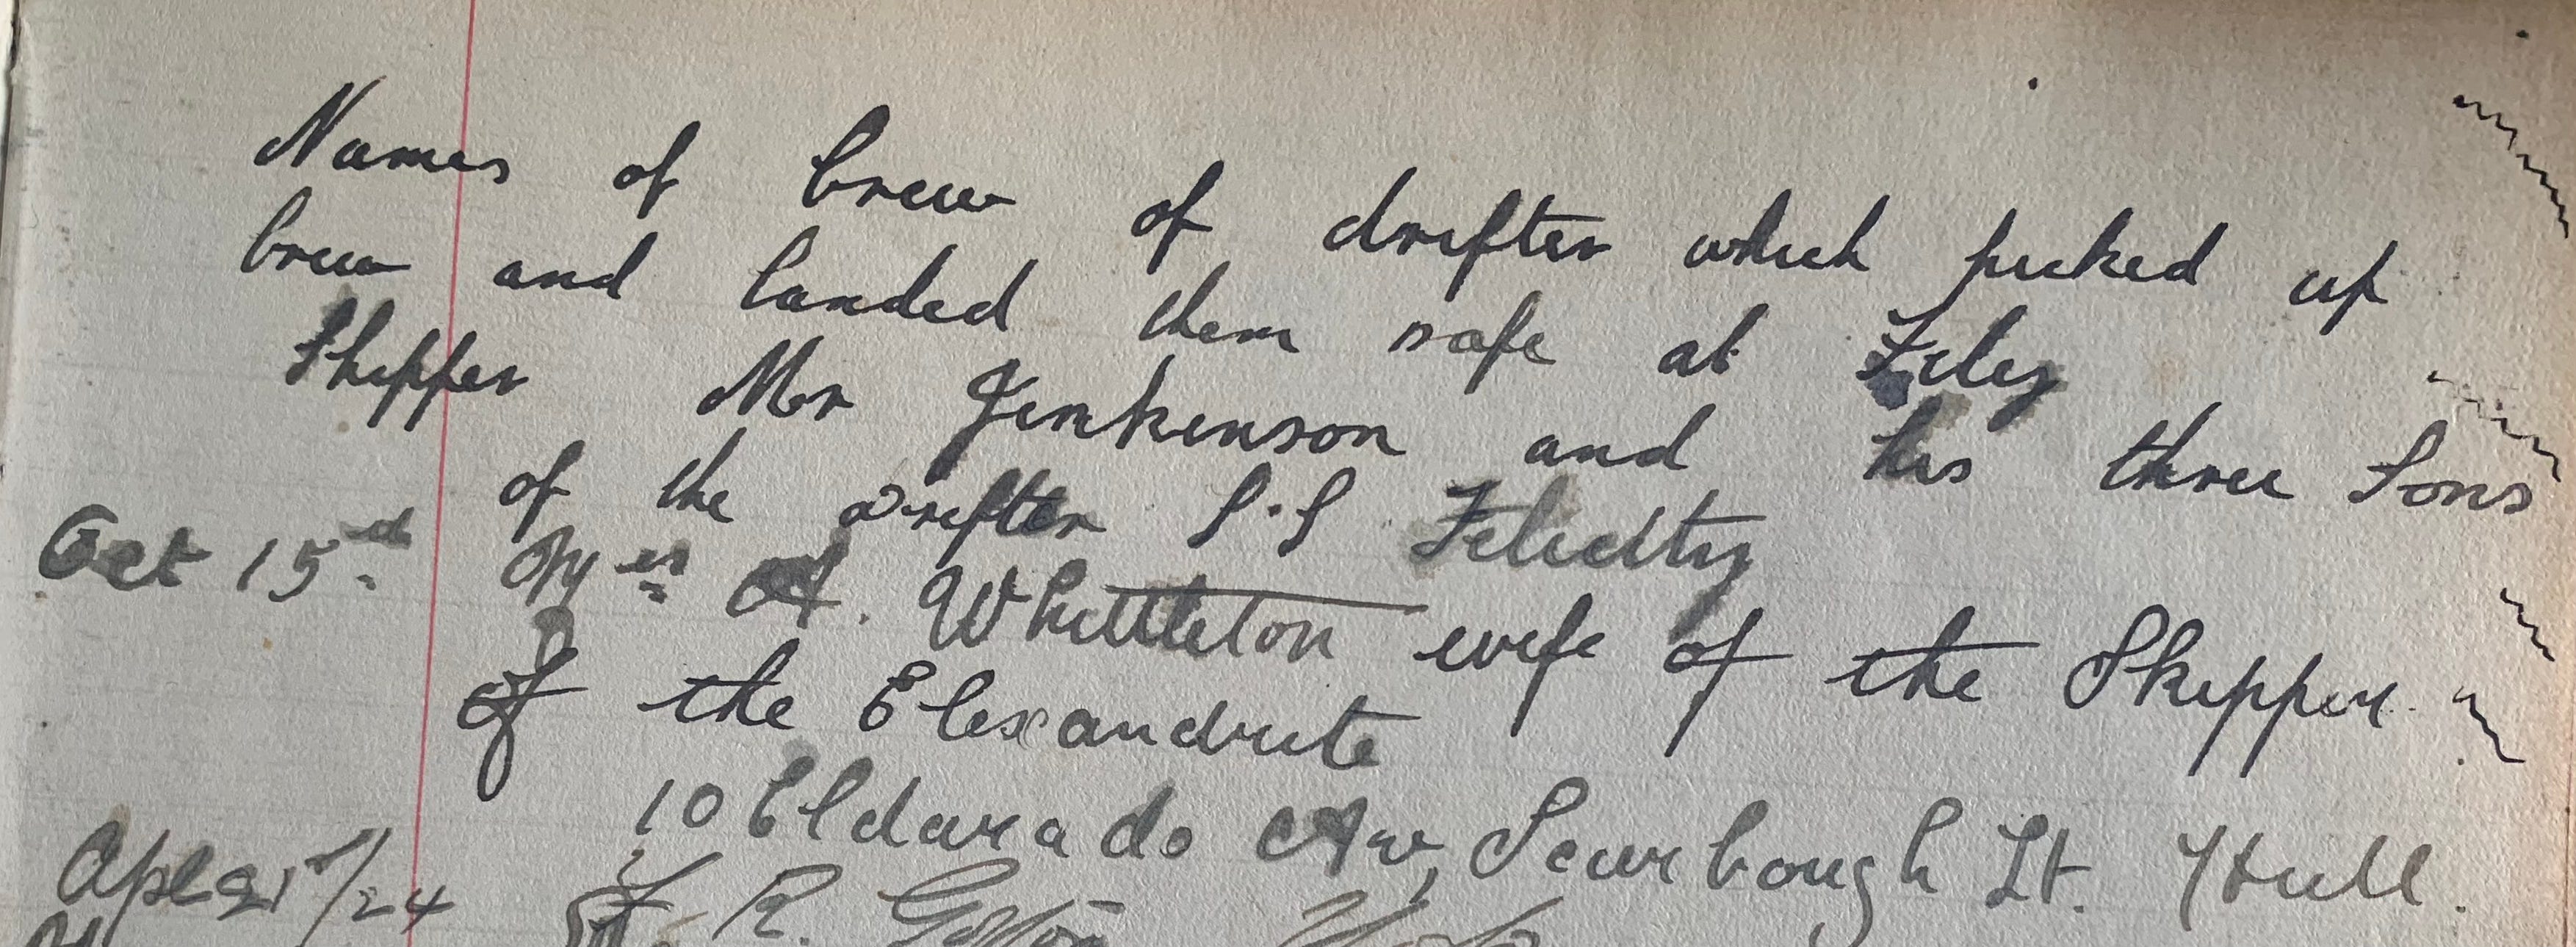 Names of Crew of drifter which picked up
Crew and landed them safe at Filey
Skipper Mr Jenkenson and his three Sons
of the drifter S.S Felicity
Oct 15th Mrs A. Whittleton wife of the Skipper
of the Elexandrite
10 Eldarado Av, Scarbough St. Hull.
Apl 21st/24 R.